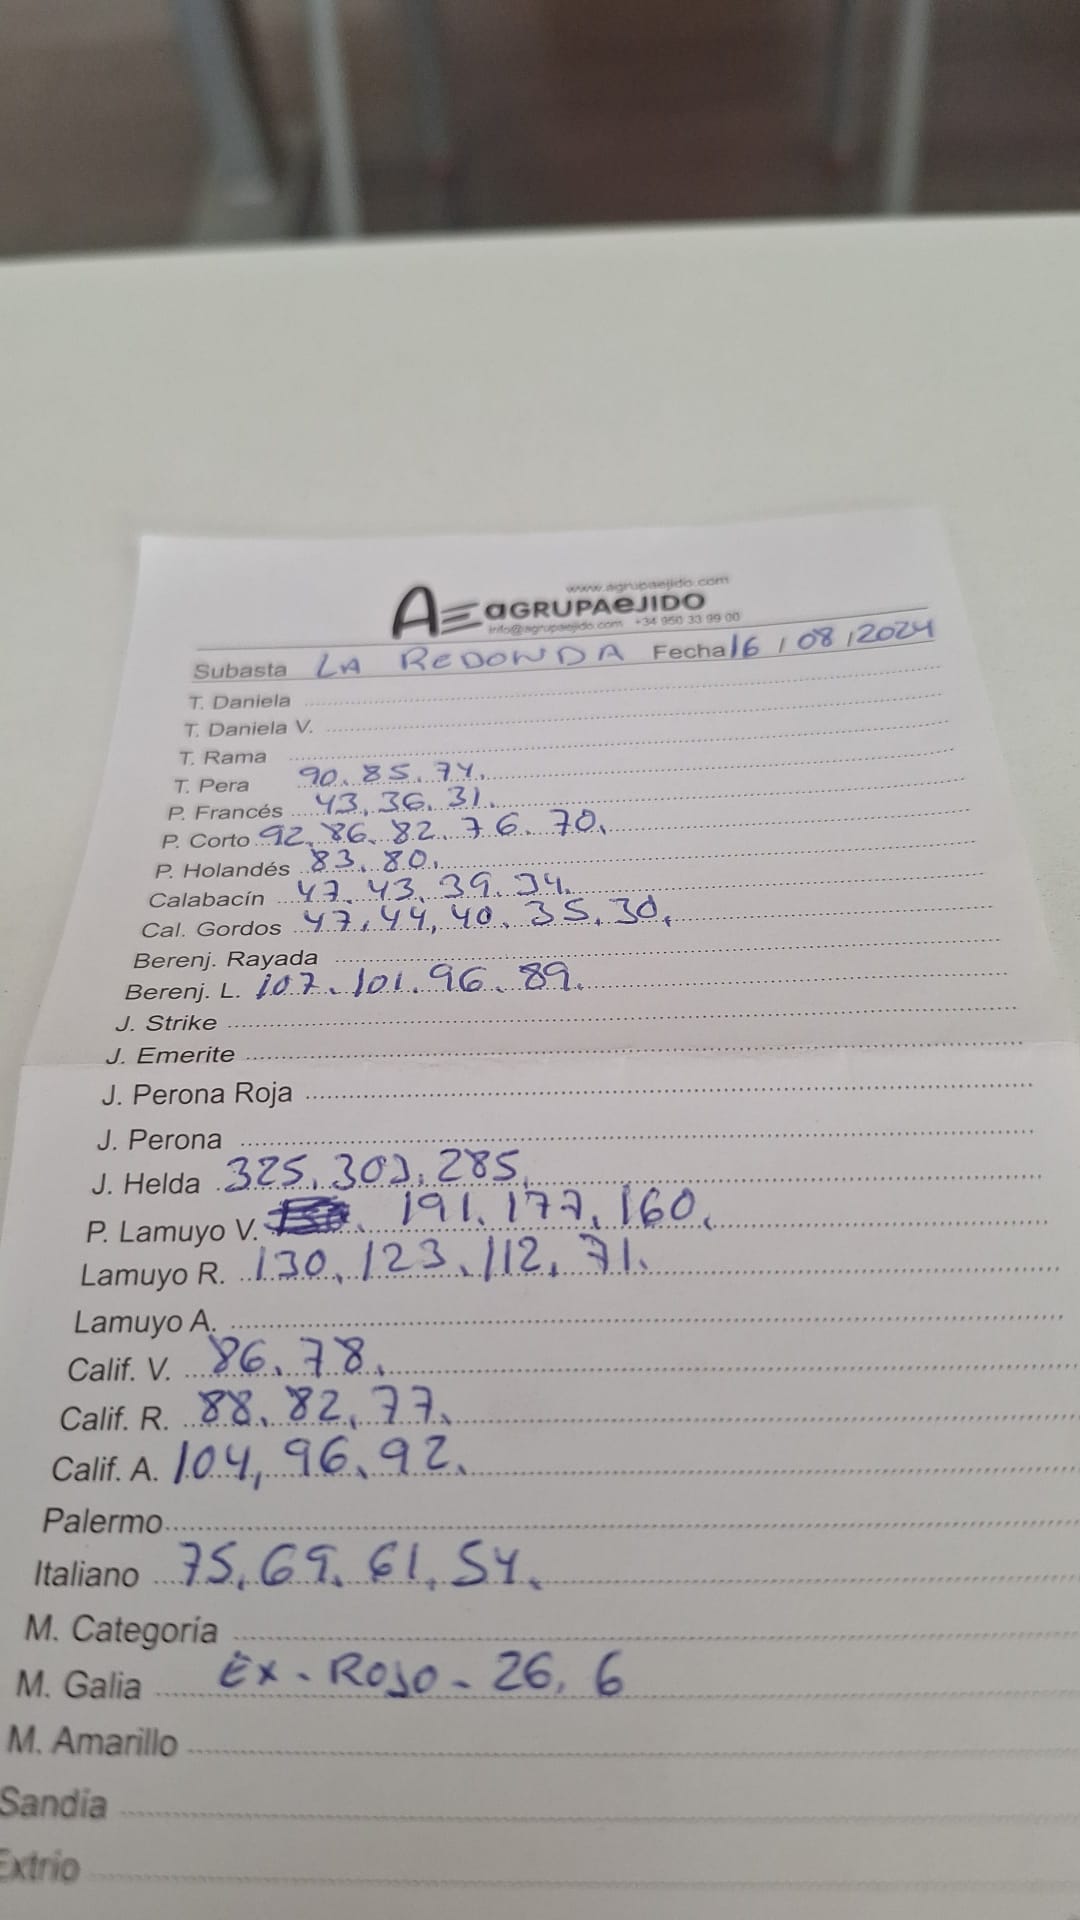 www.agrupaejido.com
AE aGRUPAeJIDO
info@agrupaejido.com +34 950 33 99 00
Subasta LA REDONDA Fecha 16 / 08 / 2024
T. Daniela
T. Daniela V.
T. Rama
T. Pera 90. 85. 74.
P. Francés 43, 36. 31.
P. Corto 92. 86. 82. 76. 70.
P. Holandés 83. 80.
Calabacín 47. 43. 39. 34.
Cal. Gordos 47, 44, 40. 35. 30.
Berenj. Rayada
Berenj. L. 107. 101. 96. 89.
J. Strike
J. Emerite
J. Perona Roja
J. Perona
J. Helda 325. 303. 285.
P. Lamuyo V. 191. 177. 160.
Lamuyo R. 130. 123. 112. 71.
Lamuyo A.
Calif. V. 86. 78.
Calif. R. 88. 82, 77.
Calif. A. 104, 96. 92.
Palermo
Italiano 75. 69. 61. 54.
M. Categoría
M. Galia Ex - Rojo - 26, 6
M. Amarillo
Sandia
Extrio